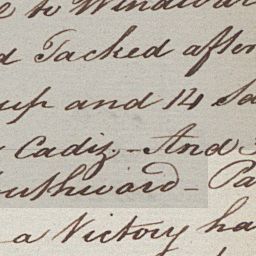 to Windward
Tacked after
up and 14 Sa
Cadiz.- And
uthward - Pa
- a Victory ha